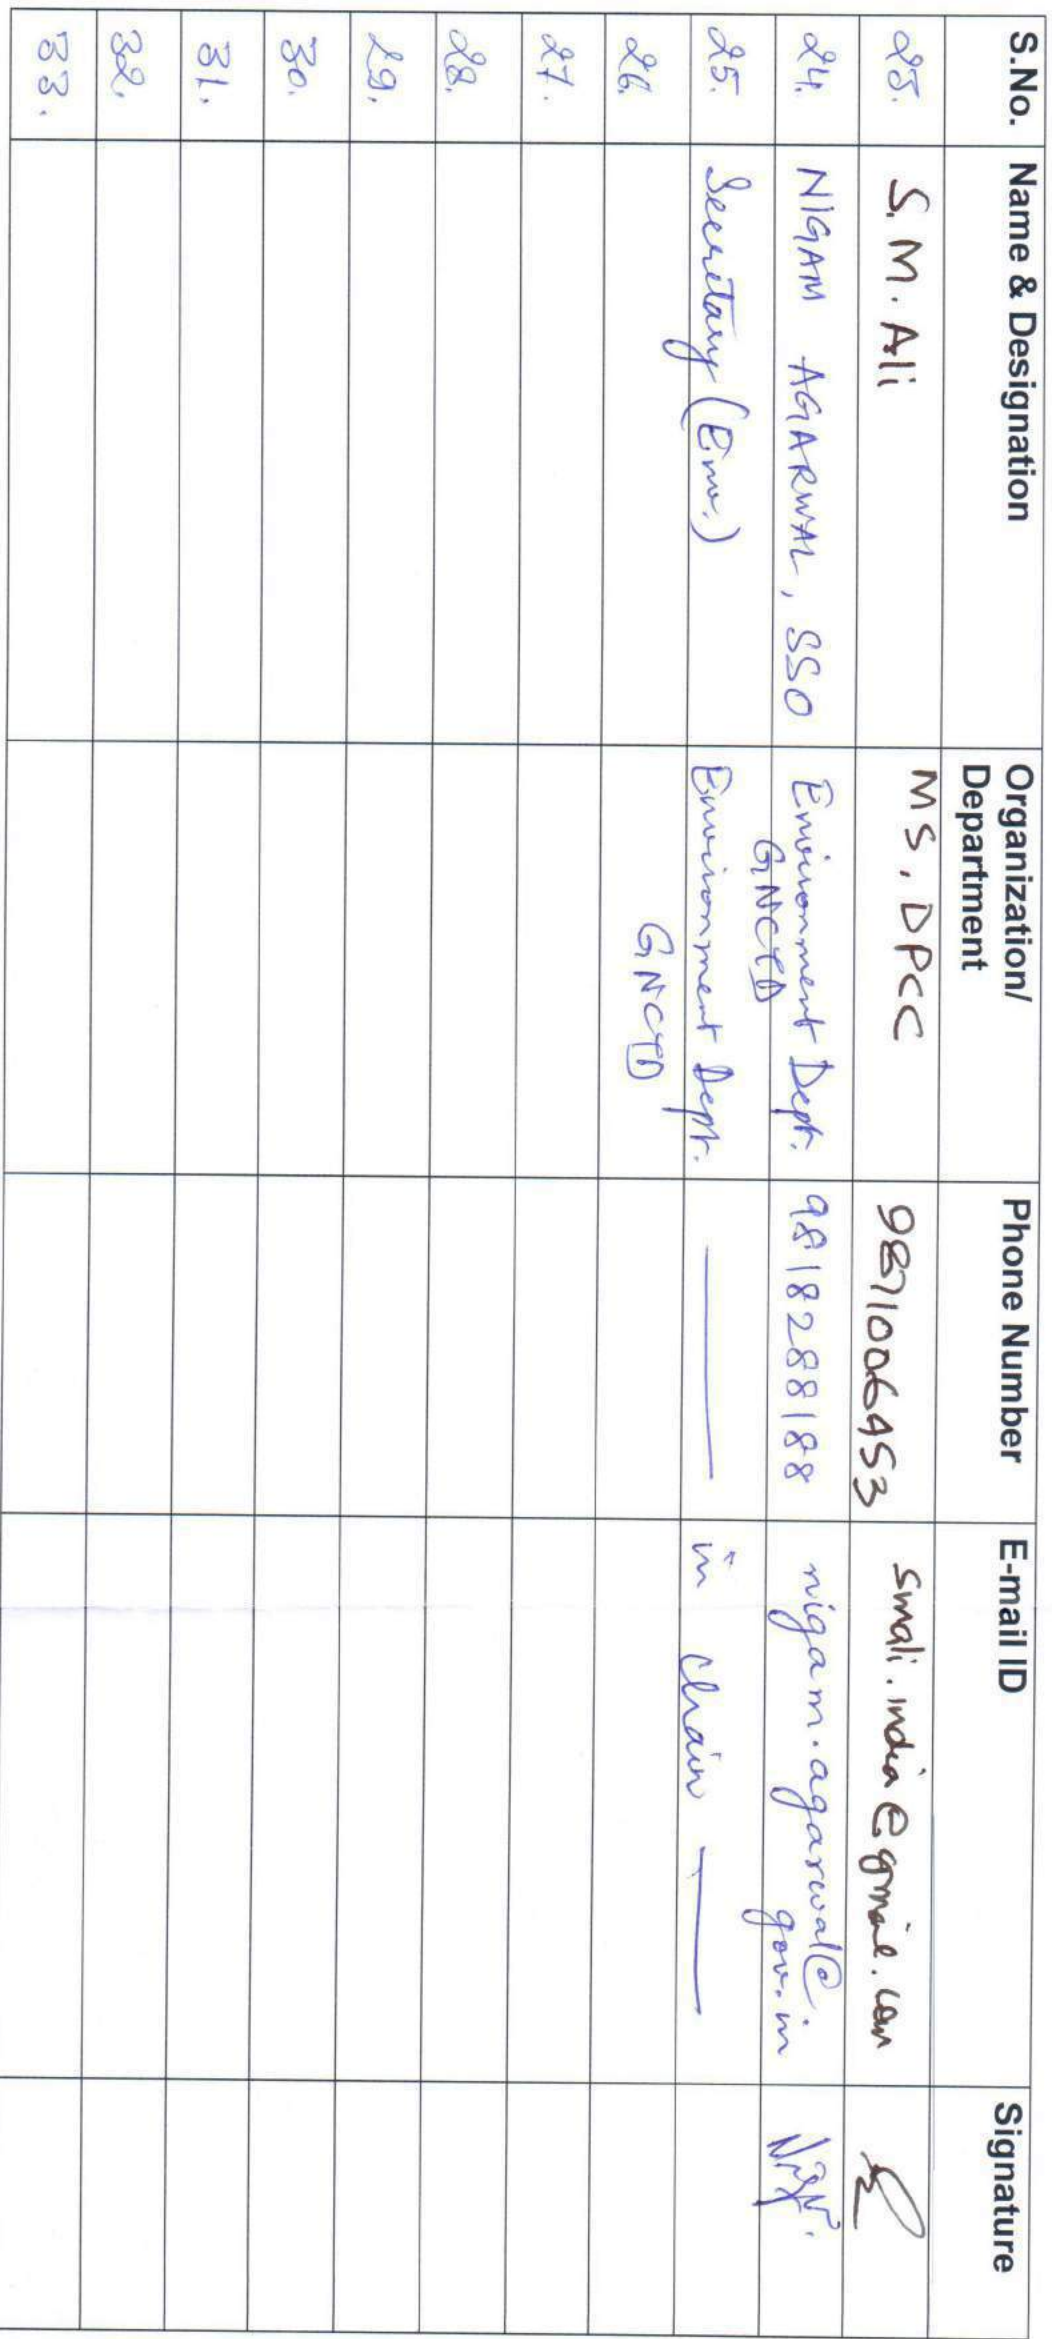 S.No. Name & Designation Organization/ Department Phone Number E-mail ID Signature
23. S. M. Ali MS, DPCC 9871006453 smali.india@gmail.com
24. NIGAM AGARWAL, SSO Environment Dept. GNCTD 9818288188 nigam.agarwal@gov.in
25. Secretary (Env.) Environment Dept. GNCTD — in chair —
26.
27.
28.
29.
30.
31.
32.
33.